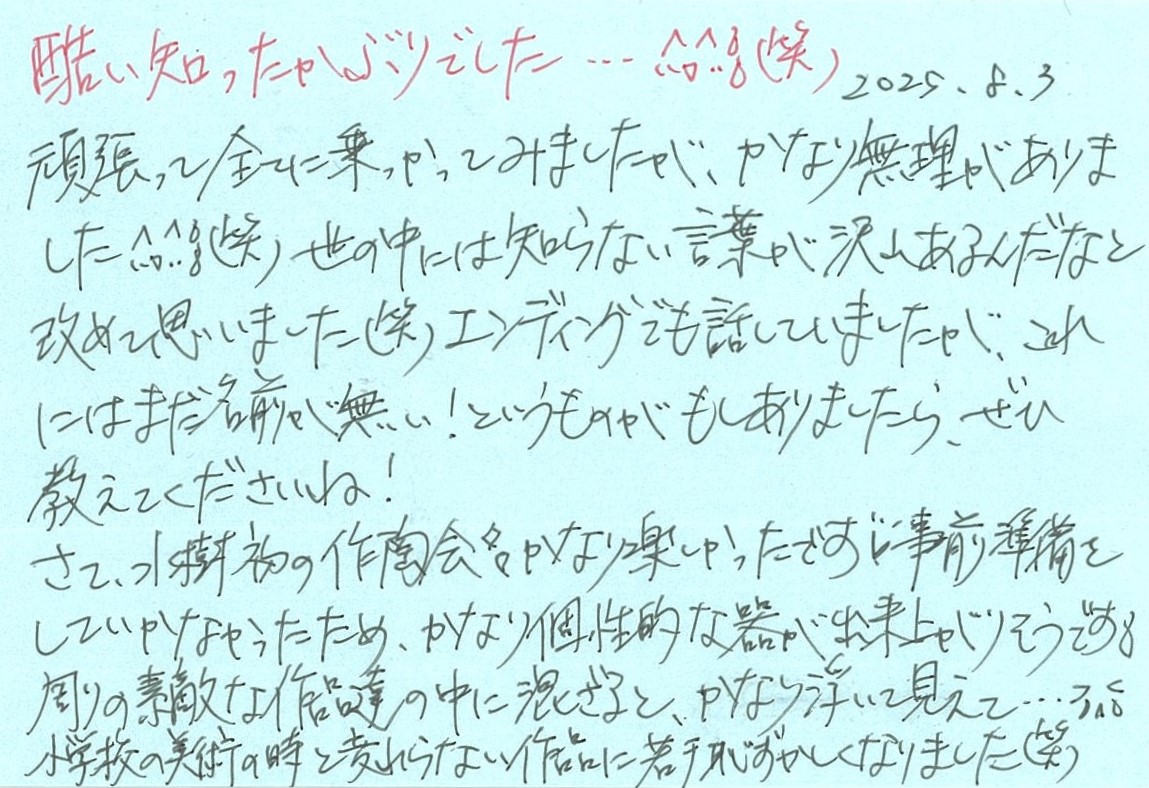 酷い知ったかぶりでした…(笑)
2025.8.3
頑張って全てに乗っかってみましたが、かなり無理がありま
した(笑)世の中には知らない言葉が沢山あるんだなと
改めて思いました(笑)エンディングでも話していましたが、これ
にはまだ名前が無い!というものがもしありましたら、ぜひ
教えてくださいね!
さて、水樹初の作陶会かなり楽しかったです事前準備を
していかなかったため、かなり個性的な器が出来上がりそうです
周りの素敵な作品達の中に混ざると、かなり浮いて見えて…
小学校の美術の時と変わらない作品に若干恥ずかしくなりました(笑)